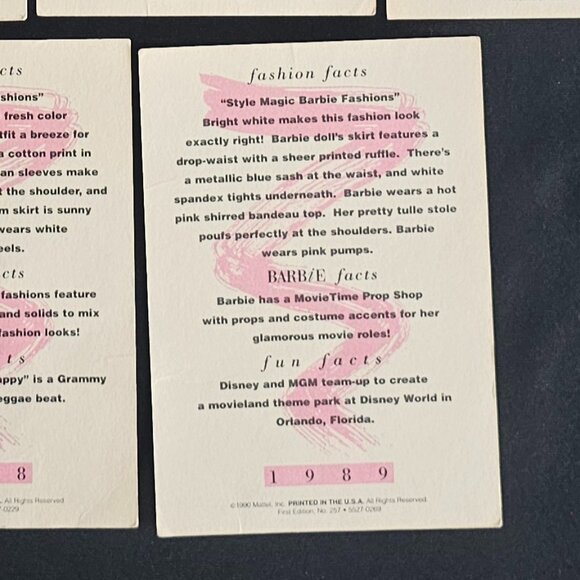 cts
shions"
fresh color
tfit a breeze for
a cotton print in
an sleeves make
t the shoulder, and
m skirt is sunny
wears white
eels.
cts
fashions feature
and solids to mix
fashion looks!
ts
appy" is a Grammy
eggae beat.
8
All Rights Reserved
-0229
fashion facts
"Style Magic Barbie Fashions"
Bright white makes this fashion look
exactly right! Barbie doll's skirt features a
drop-waist with a sheer printed ruffle. There's
a metallic blue sash at the waist, and white
spandex tights underneath. Barbie wears a hot
pink shirred bandeau top. Her pretty tulle stole
poufs perfectly at the shoulders. Barbie
wears pink pumps.
BARBiE facts
Barbie has a MovieTime Prop Shop
with props and costume accents for her
glamorous movie roles!
fun facts
Disney and MGM team-up to create
a movieland theme park at Disney World in
Orlando, Florida.
1989
©1990 Mattel, Inc. PRINTED IN THE U.S.A. All Rights Reserved.
First Edition, No. 257 • 5527-0269